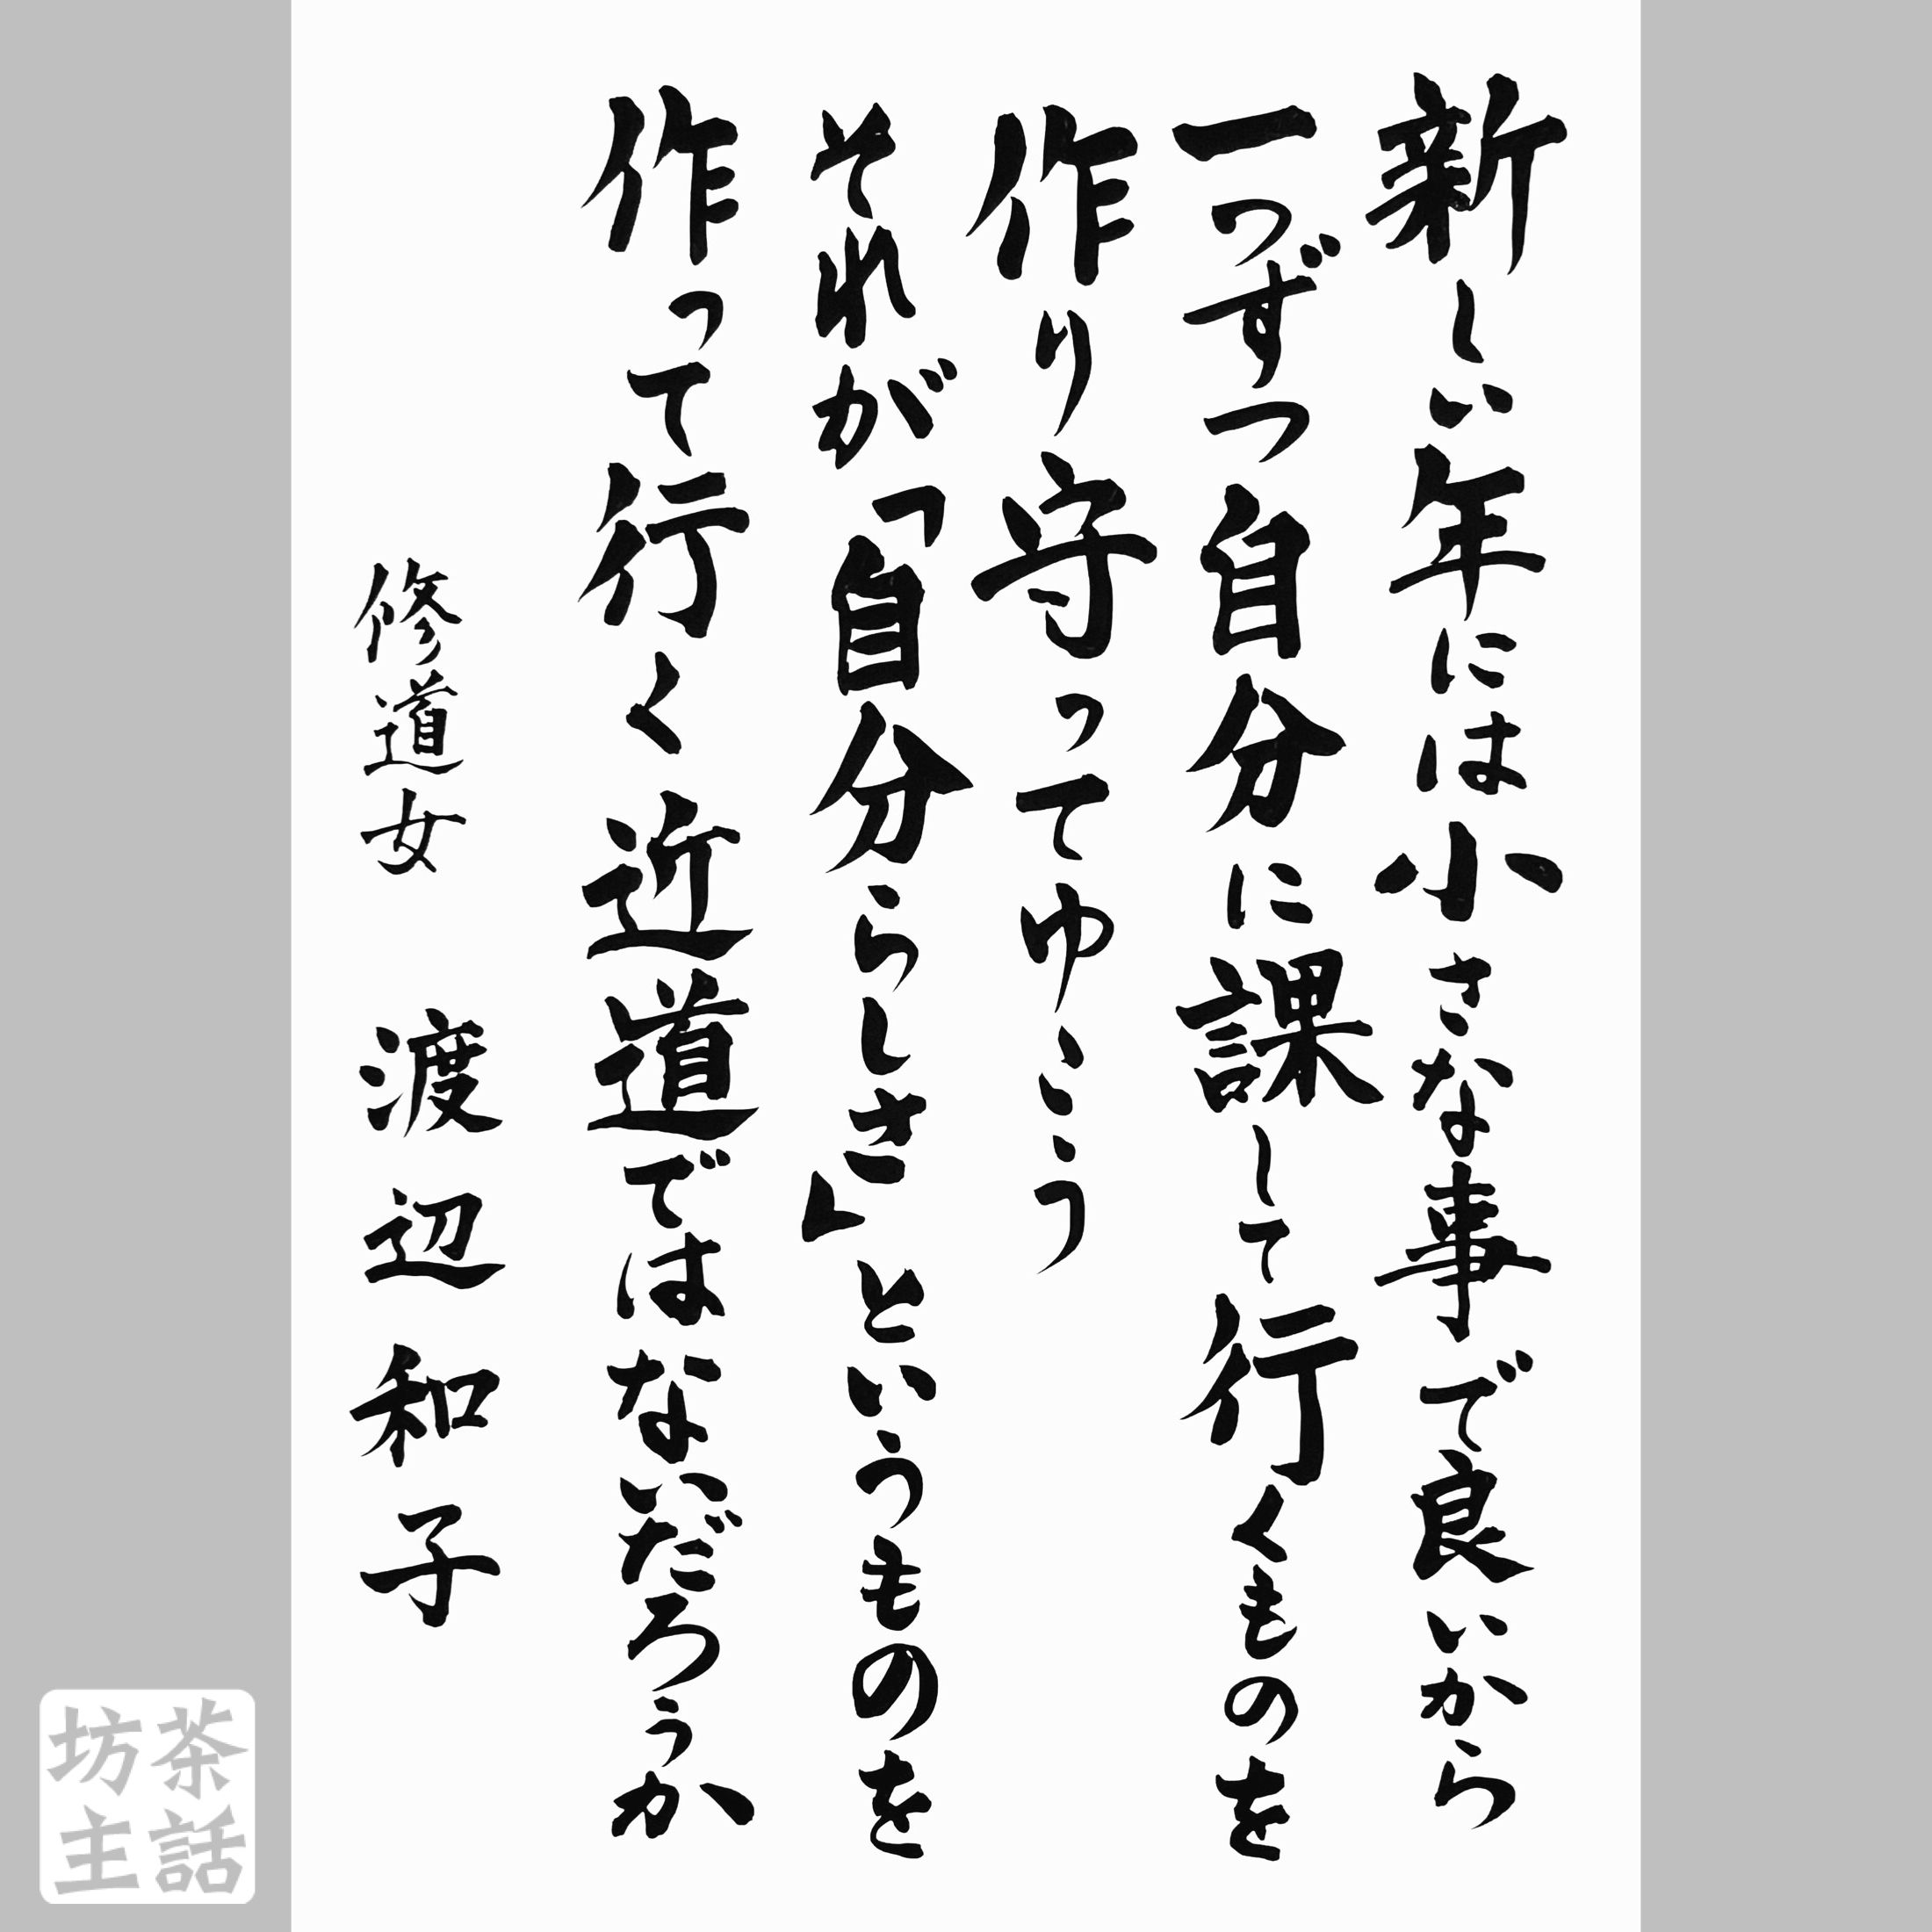 新しい年には小さな事で良いから
一つずつ自分に課して行くものを
作り守ってゆこう
それが「自分らしさ」というものを
作って行く近道ではないだろうか
修道女 渡辺和子
茶話
坊主